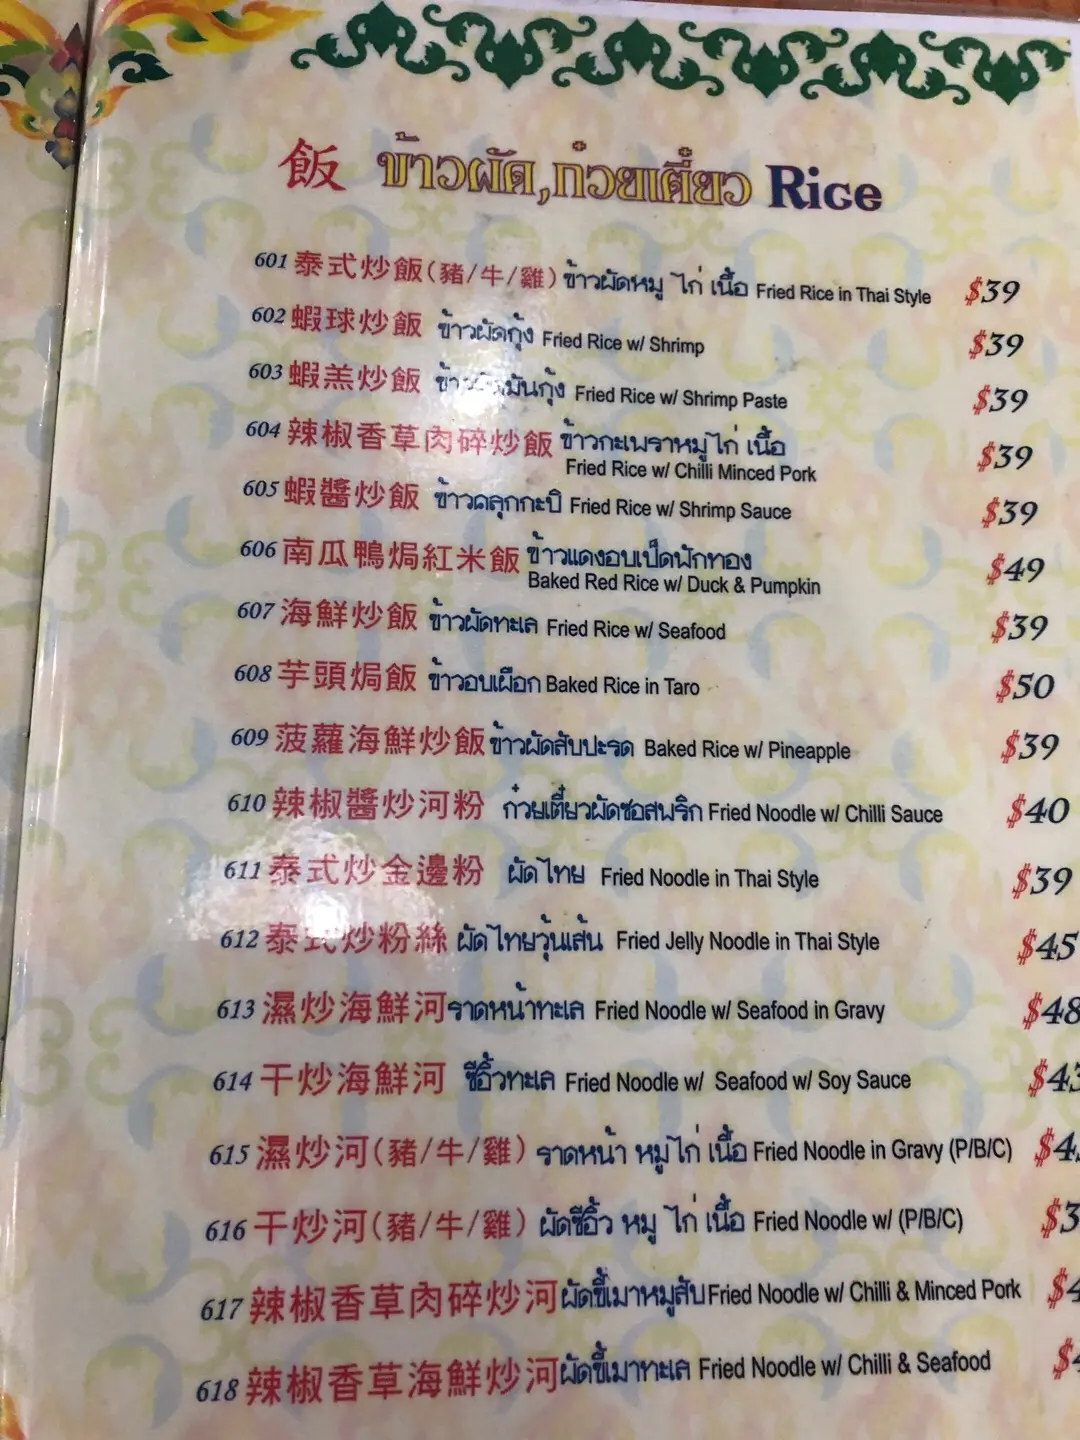 飯 ข้าวผัด,ก๋วยเตี๋ยว Rice
601 泰式炒飯(豬/牛/雞) ข้าวผัดหมู ไก่ เนื้อ Fried Rice in Thai Style $39
602 蝦球炒飯 ข้าวผัดกุ้ง Fried Rice w/ Shrimp $39
603 蝦羔炒飯 ข้าวผัดมันกุ้ง Fried Rice w/ Shrimp Paste $39
604 辣椒香草肉碎炒飯 ข้าวกะเพราหมูไก่ เนื้อ $39
Fried Rice w/ Chilli Minced Pork
605 蝦醬炒飯 ข้าวคลุกกะปิ Fried Rice w/ Shrimp Sauce $39
606 南瓜鴨焗紅米飯 ข้าวแดงอบเป็ดฟักทอง $49
Baked Red Rice w/ Duck & Pumpkin
607 海鮮炒飯 ข้าวผัดทะเล Fried Rice w/ Seafood $39
608 芋頭焗飯 ข้าวอบเผือก Baked Rice in Taro $50
609 菠蘿海鮮炒飯 ข้าวผัดสับปะรด Baked Rice w/ Pineapple $39
610 辣椒醬炒河粉 ก๋วยเตี๋ยวผัดซอสพริก Fried Noodle w/ Chilli Sauce $40
611 泰式炒金邊粉 ผัดไทย Fried Noodle in Thai Style $39
612 泰式炒粉絲 ผัดไทยวุ้นเส้น Fried Jelly Noodle in Thai Style $45
613 濕炒海鮮河 ราดหน้าทะเล Fried Noodle w/ Seafood in Gravy $48
614 干炒海鮮河 ซีอิ้วทะเล Fried Noodle w/ Seafood w/ Soy Sauce $43
615 濕炒河(豬/牛/雞) ราดหน้า หมูไก่ เนื้อ Fried Noodle in Gravy (P/B/C) $4
616 干炒河(豬/牛/雞) ผัดซีอิ้ว หมู ไก่ เนื้อ Fried Noodle w/ (P/B/C) $3
617 辣椒香草肉碎炒河 ผัดขี้เมาหมูสับ Fried Noodle w/ Chilli & Minced Pork $4
618 辣椒香草海鮮炒河 ผัดขี้เมาทะเล Fried Noodle w/ Chilli & Seafood $4